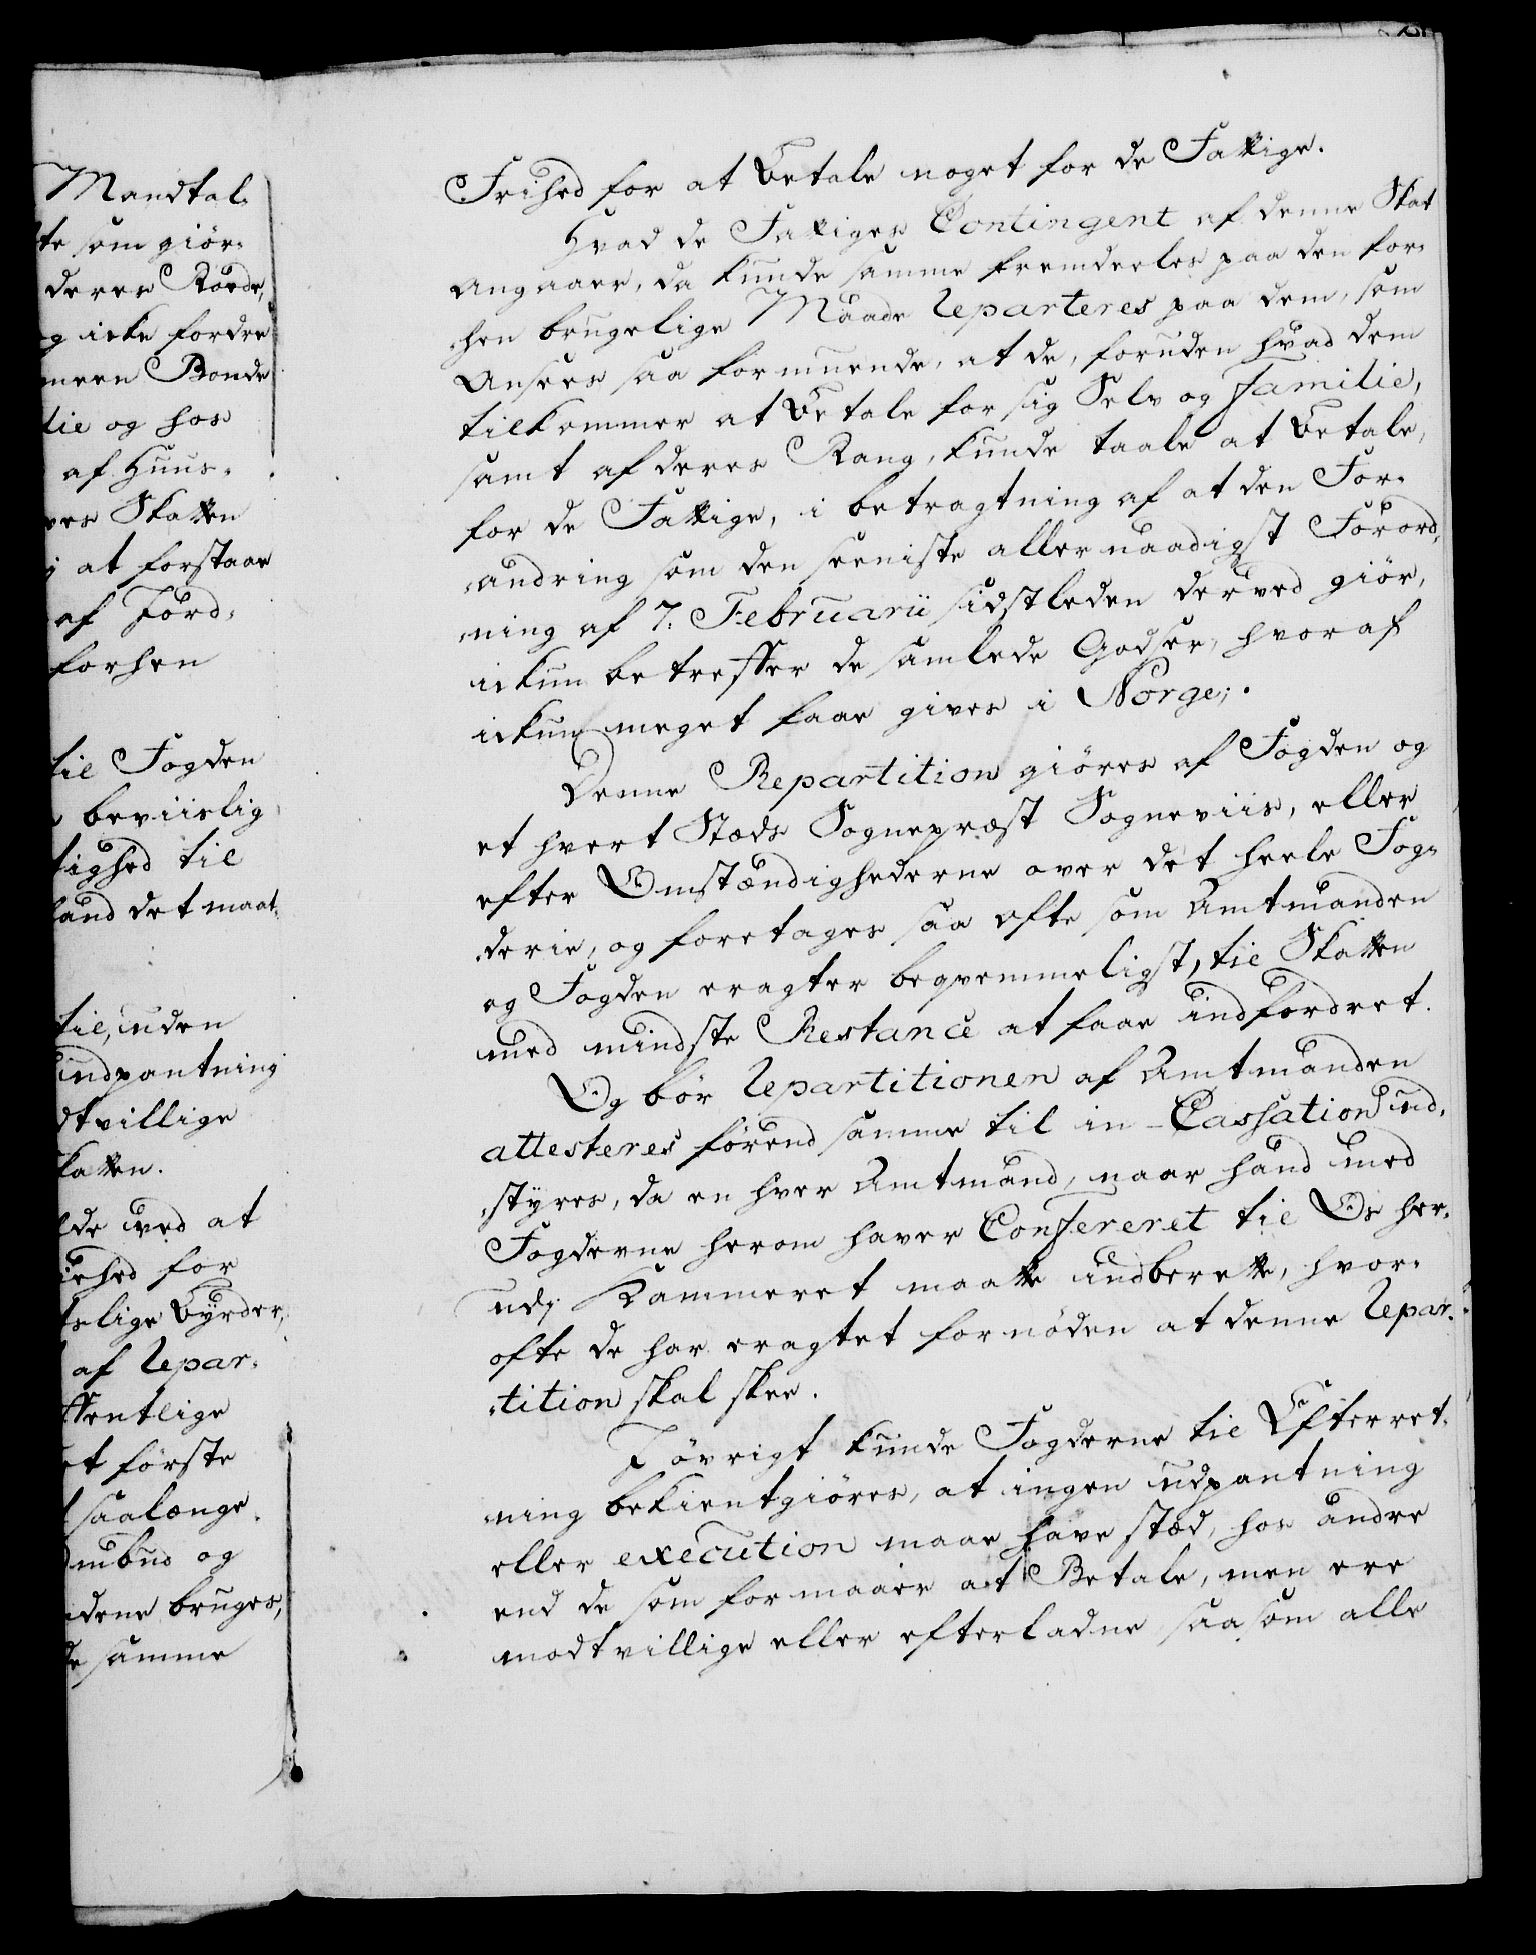 Mandtal-
te som giör-
deres Röede,
g icke fordre
meen Bonde
lie og hos
af Huus-
ves Skatten
j at forstaae
af Jord-
forhen
til Fogden
beviislig
tighed til
land det maat-
til, uden
udpantning
dtvillige
katten.
lde ved at
iehed for
tslige Byrder,
af Repar-
ffentlige
et förste
saalænge
mbud og
dene bruges,
de samme
Frihed for at betale noget for de Fattige.
Hvad de Fattiges Contingent af denne Skat
angaaer, da kunde samme fremdeeles paa den for-
hen brugelige Maade reparteres paa dem, som
ansees saa formuende, at de, foruden hvad dem
tilkommer at betale for sig Selv og Familie,
samt af deres Rang, kunde taale at betale,
for de Fattige, i betragtning af at den For-
andring som den seeniste allernaadigst Forord-
ning af 7. Februarii sidstleden derved giör,
ickun betreffer de samlede Godser, hvoraf
ickun meget faae gives i Norge;.
Denne Repartition giöres af Fogden og
et hvert Stæds Sognepræst Sogneviis, eller
efter Omstændighederne over det heele Fog-
derie, og foretages saa ofte som Amtmanden
og Fogden eragter beqvemmeligst, til Skatten
med mindste Restance at faae indfordret.
Og bör Repartitionen af Amtmanden
attesteres förend samme til in-Cassation ud-
styres, da en hver Amtmand, naar hand med
Fogderne herom haver Confereret til Os her-
udj Kammeret maatte indberette, hvor-
ofte de har eragtet fornöden at denne Repar-
tition skal skee.
I övrigt kunde Fogderne til Efterret-
ning bekientgiöres, at ingen udpantning
eller execution maae have stæd, hos andre
end de som formaaer at Betale, men ere
modtvillige eller efterladne saasom alle